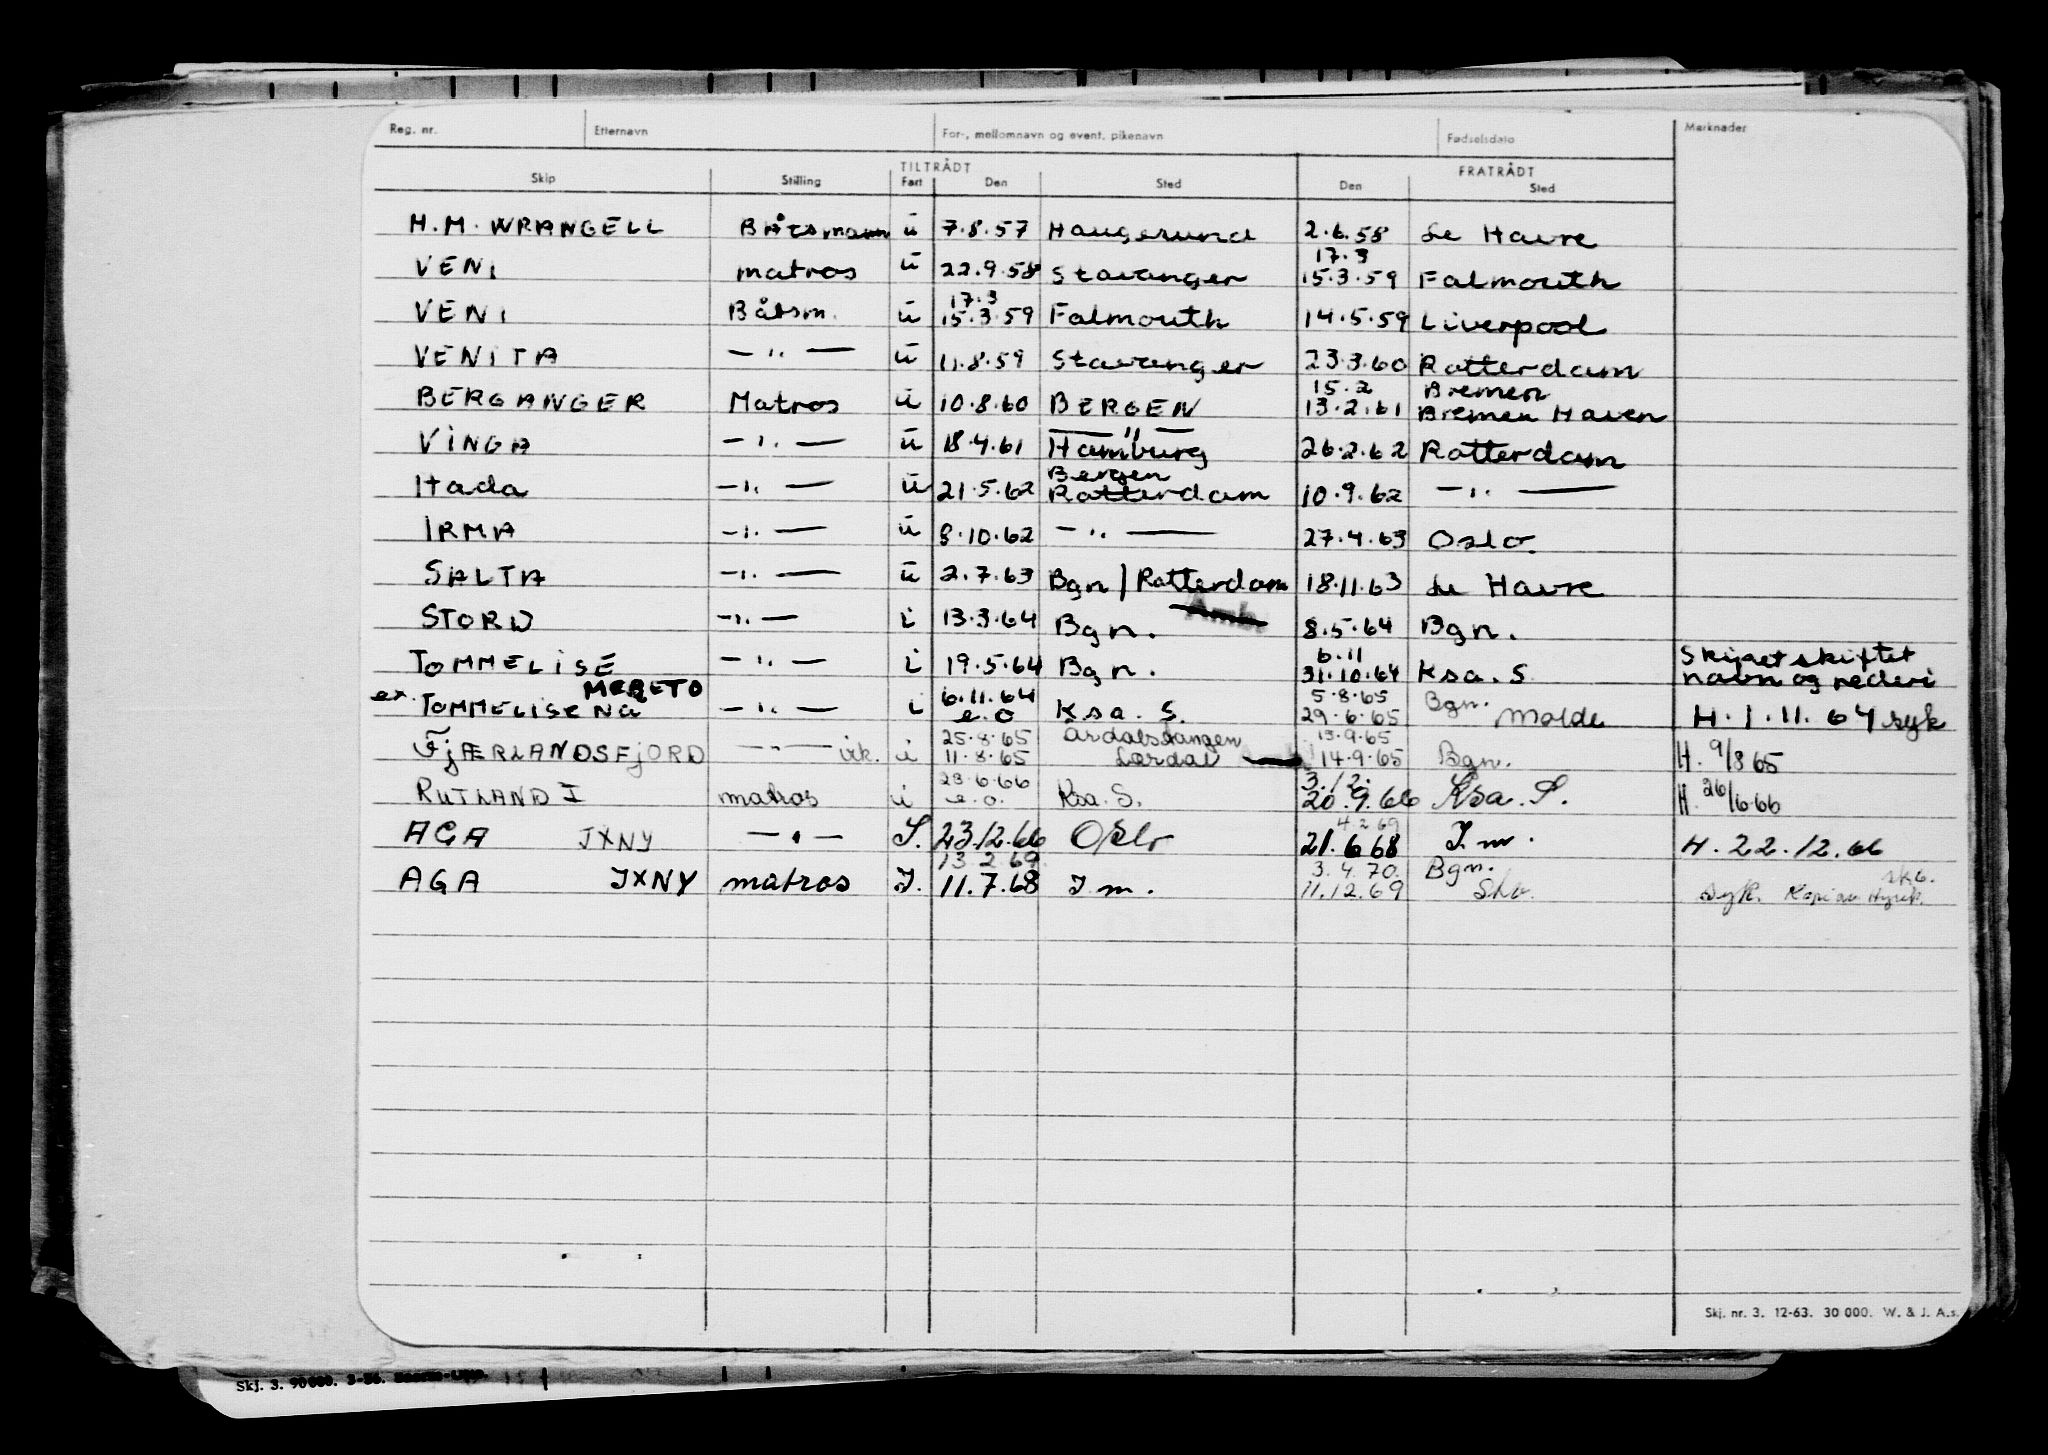 Reg. nr. Etternavn For-, mellomnavn og event. pikenavn Fødselsdato Merknader
TILTRÅDT FRATRÅDT
Skip Stilling Fart Den Sted Den Sted
H.M. WRANGELL Båtsmann u 7.8.57 Haugesund 2.6.58 Le Havre
17.3
VENI matros u 22.9.58 Stavanger 15.3.59 Falmouth
17.3
VENI Båtsm. u 15.3.59 Falmouth 14.5.59 Liverpool
VENITA —"— u 11.8.59 Stavanger 23.3.60 Rotterdam
15.2 Bremen
BERGANGER Matros u 10.8.60 BERGEN 13.2.61 Bremen Haven
—"—
VINGA —"— u 18.4.61 Hamburg 26.2.62 Rotterdam
Bergen
Hada —"— u 21.5.62 Rotterdam 10.9.62 —"—
IRMA —"— u 8.10.62 —"— 27.4.63 Oslo.
SALTA —"— u 2.7.63 Bgn / Rotterdam 18.11.63 Le Havre
STORD —"— i 13.3.64 Bgn. 8.5.64 Bgn.
6.11 Skipet skiftet
TOMMELISE —"— i 19.5.64 Bgn. 31.10.64 Ksa. S navn og rederi
MERETO 6.11.64 5.8.65 Bgn.
ex. TOMMELISE Na —"— i e.o Ksa. S. 29.6.65 Molde H. 1.11.64 syk
25.8.65 Årdalstangen 13.9.65
FjÆRLANDSFjORD —"— vik. i 11.8.65 Lærdal 14.9.65 Bgn. H. 9/8 65
28.6.66 3.12.
RUTLAND I matros i e.o. Ksa. S. 20.9.66 Ksa. S. H. 26/6.66
4.2.69
AGA JXNY —"— I. 23.12.66 Oslo 21.6.68 I.m. H. 22.12.66
13.2.69 3.4.70. Bgn.
AGA JXNY matros I. 11.7.68 I.m. 11.12.69 syk.
Skj. nr. 3. 12-63. 30 000. W. & J. A.s.
Skj. 3. 90 000. 3-56.